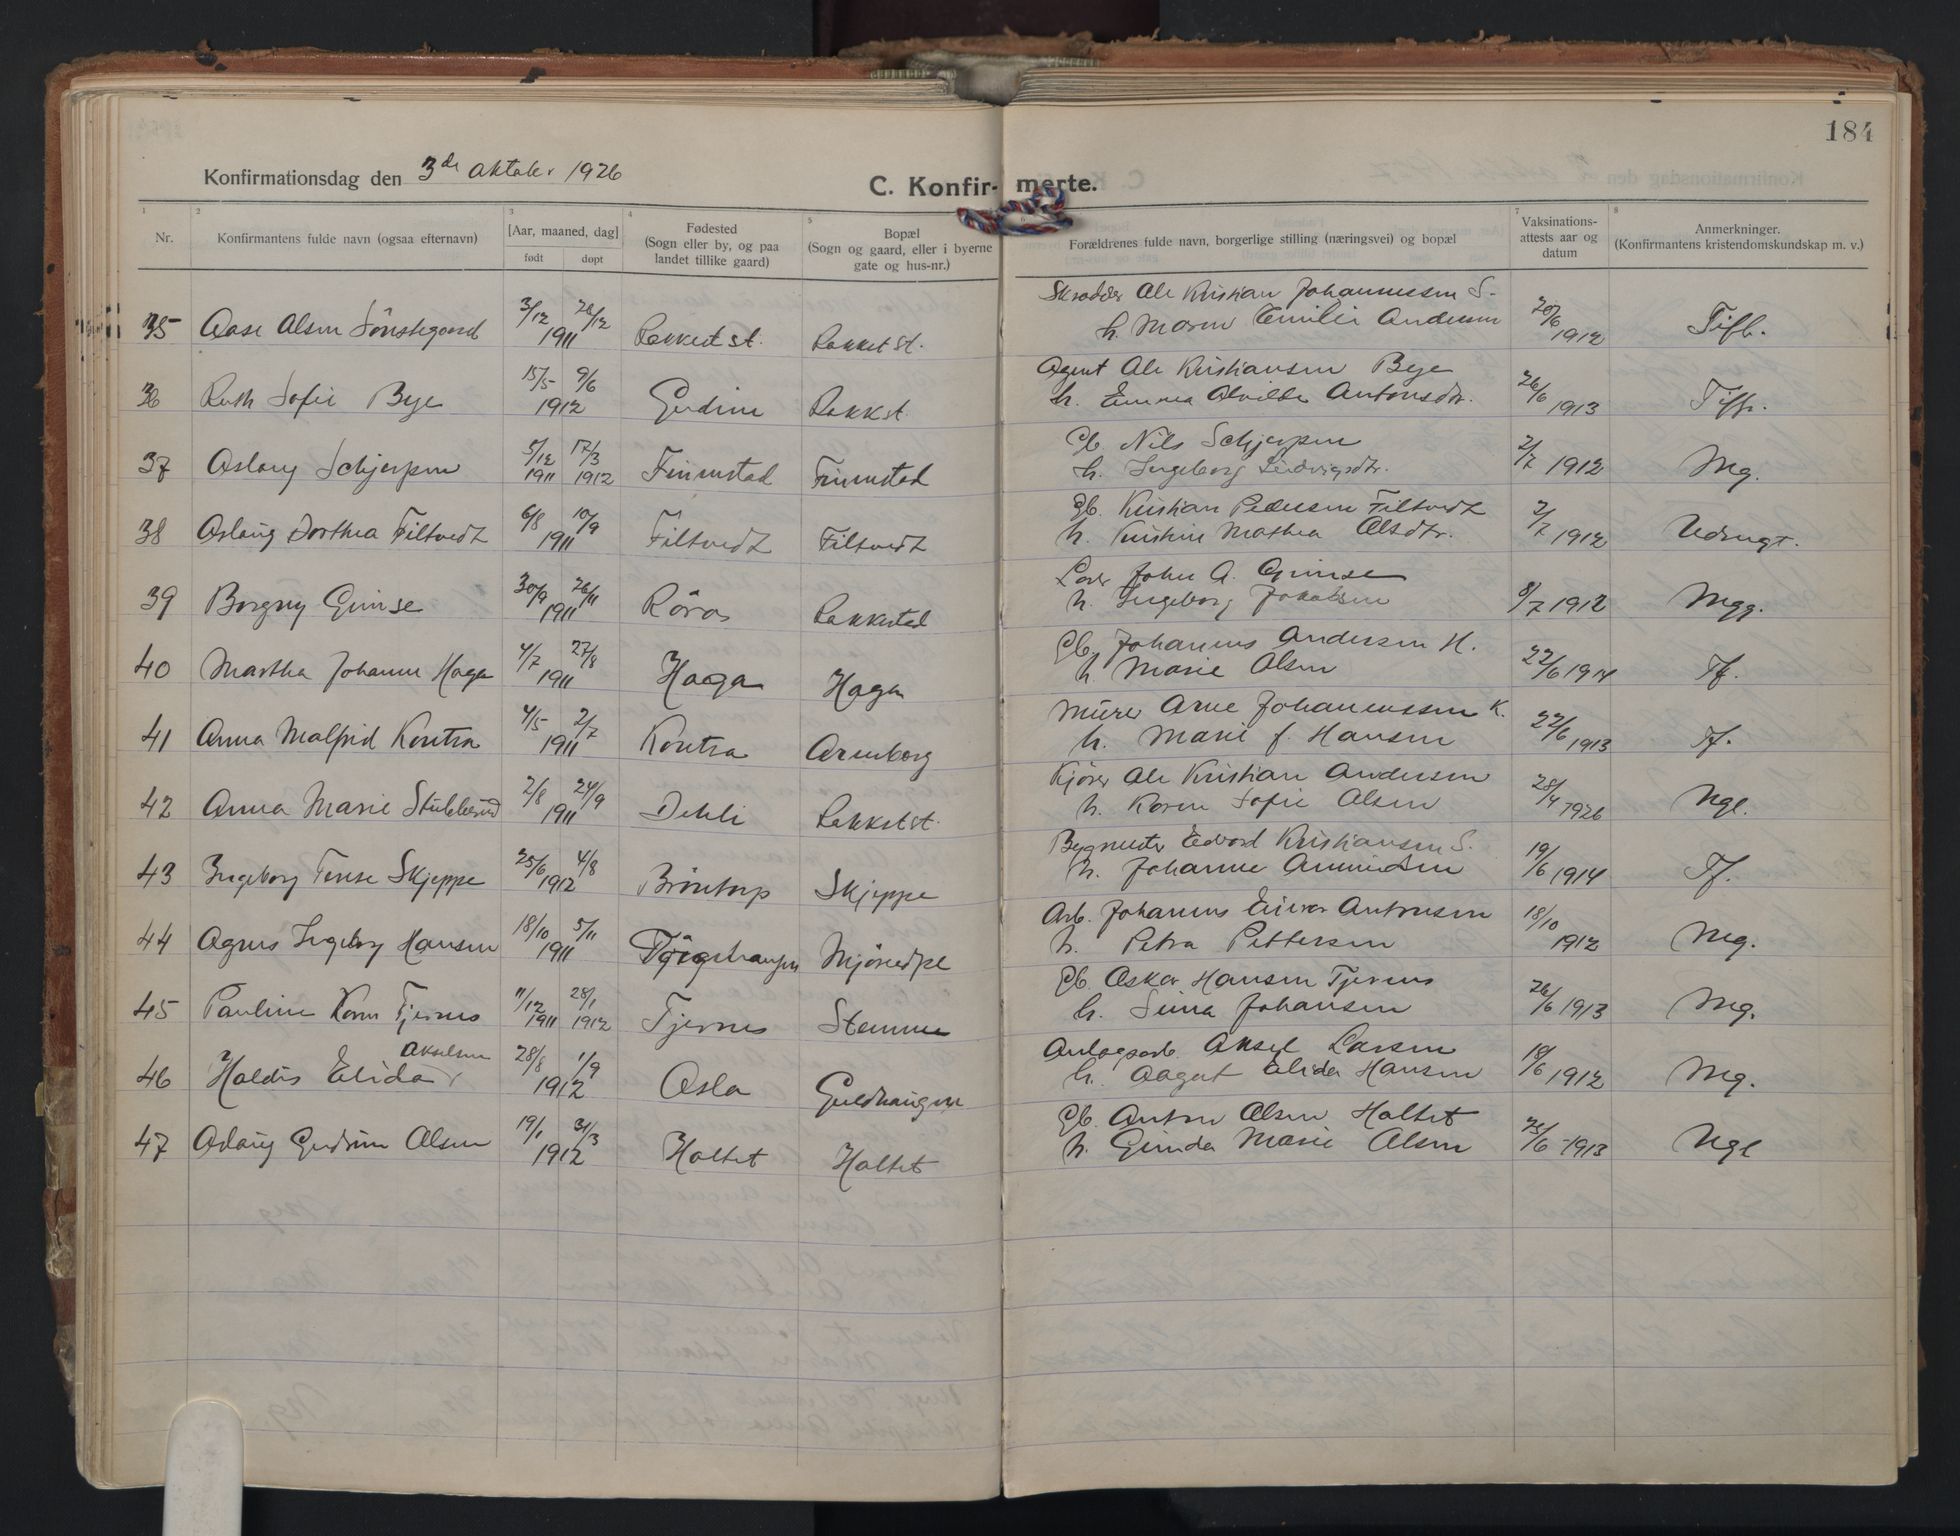 184
Konfirmationsdag den 3de Oktober 1926
C. Konfir- merte.
1 2 3 4 5 6 7 8
Nr.
Konfirmantens fulde navn (ogsaa efternavn)
[Aar, maaned, dag]
født døpt
Fødested
(Sogn eller by, og paa
landet tillike gaard)
Bopæl
(Sogn og gaard, eller i byerne
gate og hus-nr.)
Forældrenes fulde navn, borgerlige stilling (næringsvei) og bopæl
Vaksinations-
attests aar og
datum
Anmerkninger.
(Konfirmantens kristendomskundskap m. v.)
Skrædder Ole Kristian Johannessen S.
35 Aase Olsen Sønstegaard 3/12 26/12 1911 Rakkest st. Rakkest st. h. Maren Emilie Andersen 20/6 1912 Tifb.
Agent Ole Kristiansen Bye
36 Ruth Sofie Bye 15/5 9/6 1912 Rakkst. h. Emma Alvilde Antonsdtr. 26/6 1913
Gb. Nils Schjerpen
37 Aslaug Schjerpen 5/12 1911 17/3 1912 Finnestad Finnestad h. Ingeborg Ludvigsdtr. 2/7 1912 Mg.
Gb. Kristian Pedersen Filtvedt
38 Aslaug Dorthea Filtvedt 6/8 10/9 1911 Filtvedt Filtvedt h. Kristine Mathea Olsdtr. 2/7 1912 Udmgt.
John A. Grimse
39 Borgny Grimse 30/9 26/11 1911 Røros Rakkestad h. Ingeborg Jakobsen 8/7 1912 Mgg.
Gb. Johannes Andersen H.
40 Martha Johanne Haga 4/7 27/8 1911 Haga Haga h. Marie Olsen 22/6 1914 Tf.
Murer Arne Johannessen K.
41 Anna Malfrid Kontra 4/5 2/7 1911 Kontra Arneborg h. Marie f. Hansen 22/6 1913 Tf.
Kjører Ole Kristian Andersen
42 Anna Marie Stubberud 2/8 24/9 1911 Dehli Rakkest st. h. Karen Sofie Olsen 28/4 1926 Ngl.
Bygmester Edvard Kristiansen S.
43 Ingeborg Terese Skjeppe 25/6 4/8 1912 Brøntorp Skjeppe h. Johanne Amundsen 19/6 1914 Tf.
Arb. Johannes Einar Antonsen
44 Agnes Ingeborg Hansen 18/10 5/11 1911 Mjørudpl h. Petra Pettersen 18/10 1912 Mg.
Gb. Oskar Hansen Tjernes
45 Pauline Karen Tjernes 11/12 1911 28/1 1912 Tjernes Stemme h. Sina Johansen 26/6 1913 Mg.
Akselsen Anlægsarb. Aksel Larsen
46 Haldis Elida 28/8 1/9 1912 Oslo Guldhaugen h. Aagot Elida Hansen 18/6 1912 Mg.
Gb. Anton Olsen Holtet
47 Aslaug Gudrun Olsen 19/1 31/3 1912 Holtet Holtet h. Gunda Marie Olsen 25/6 1913 Ngl